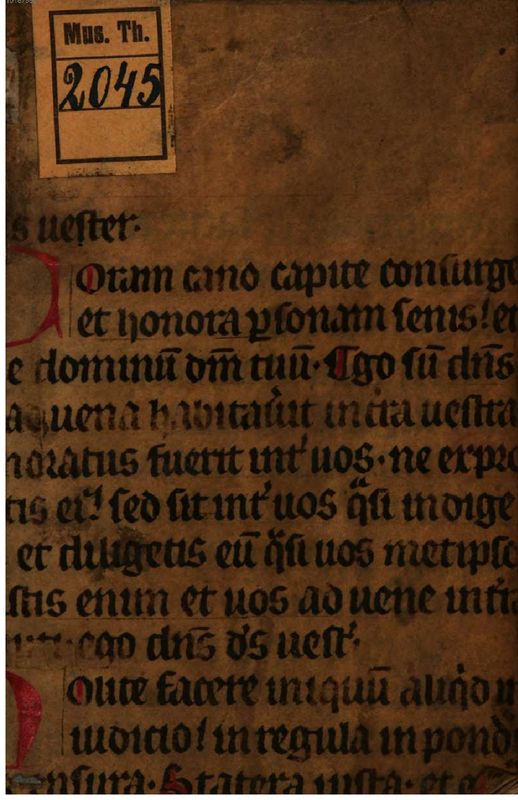 Mus. Th.
2045
s uester.
Coram cano capite consurge
et honora ꝑsonam senis! et
e dominū dm̄ tuū. Ego sū dn̄s
aduena habitau͛it in t͛ra uestra
moratus fuerit int͛ uos. ne expro
tis ei! sed sit int͛ uos q̈si indige
et diligetis eū q̈si uos metipso
stis enim et uos aduene in t͛ra
ego dn̄s d͛s uest͛.
Nolite facere iniquū aliqͥd
iudicio! in regula in pond͛
ensura. Statera iusta. et e